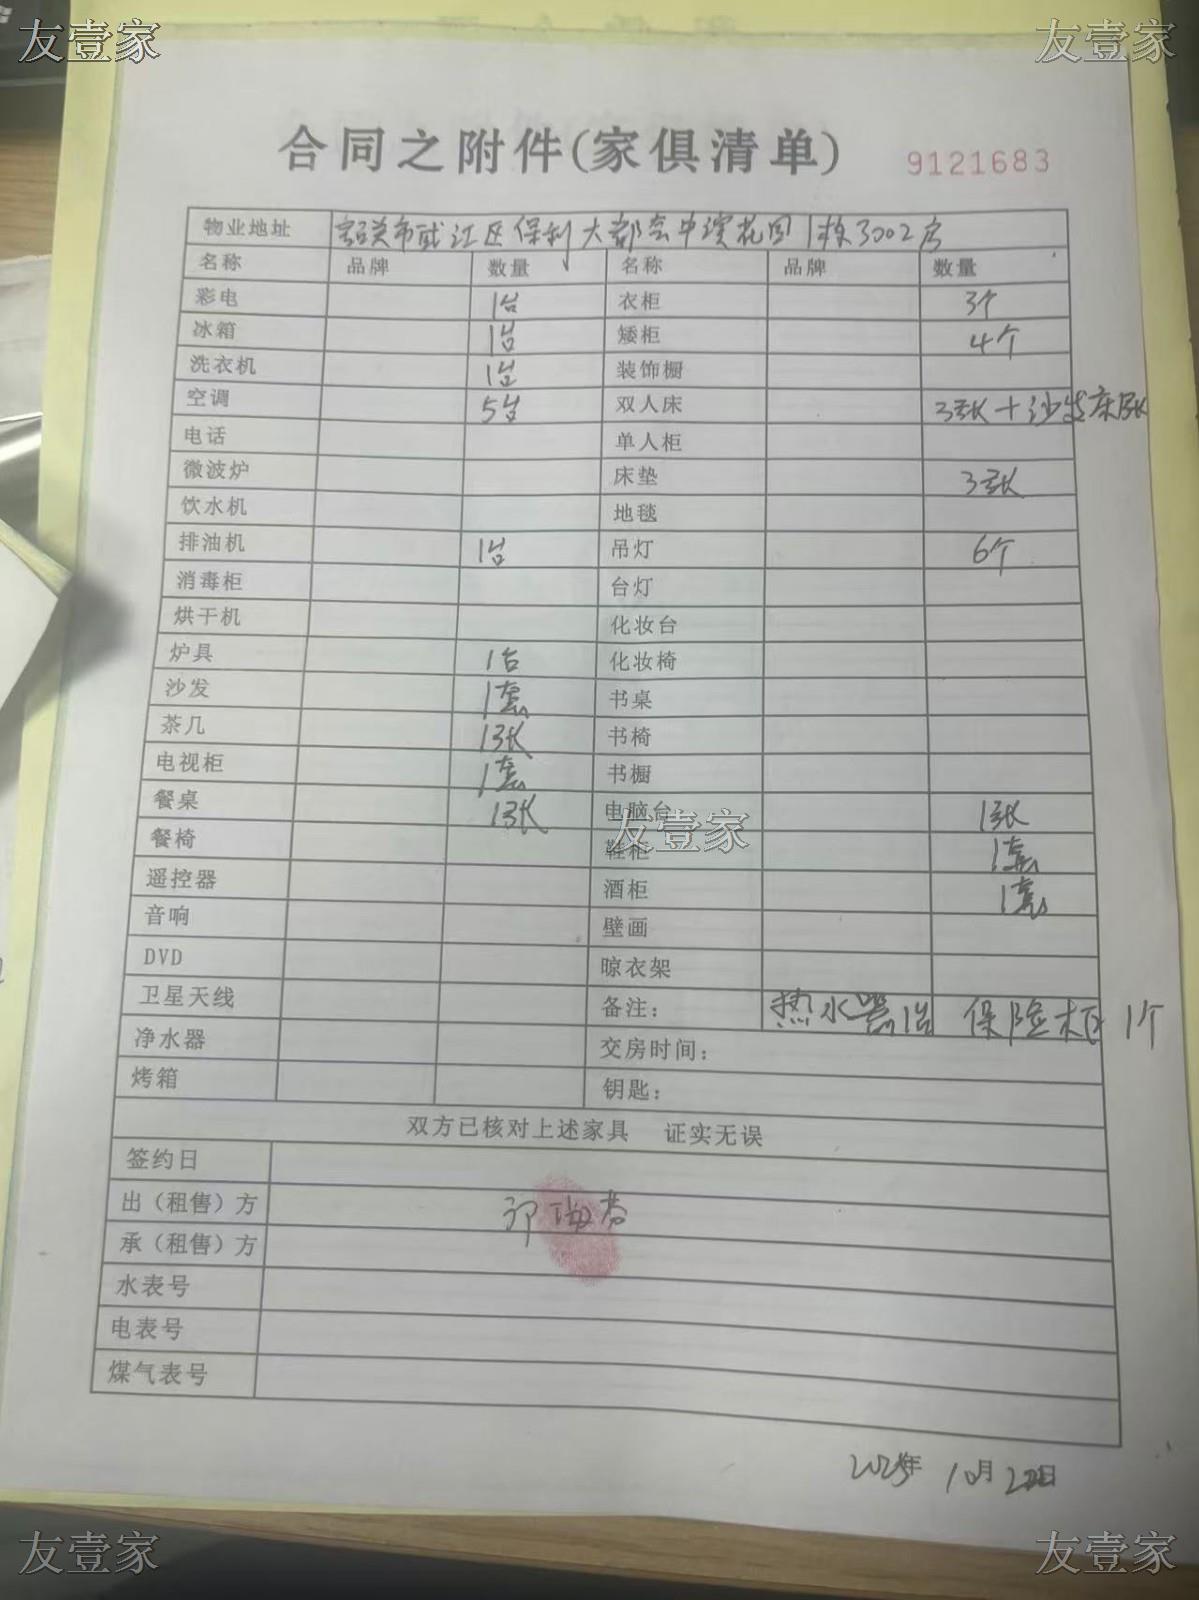 友壹家 友壹家
合同之附件(家俱清单) 9121683
物业地址 韶关市武江区保利大都会中滨花园1栋3002房
名称 品牌 数量 名称 品牌 数量
彩电 1台 衣柜 3个
冰箱 1台 矮柜 4个
洗衣机 1台 装饰橱
空调 5台 双人床 3张+沙发床1张
电话 单人柜
微波炉 床垫 3张
饮水机 地毯
排油机 1台 吊灯 6个
消毒柜 台灯
烘干机 化妆台
炉具 1台 化妆椅
沙发 1套 书桌
茶几 1张 书椅
电视柜 1套 书橱
餐桌 1张 电脑台 1张
友壹家
餐椅 鞋柜 1套
遥控器 酒柜 1套
音响 壁画
DVD 晾衣架
卫星天线 备注: 热水器1台 保险柜1个
净水器 交房时间:
烤箱 钥匙:
双方已核对上述家具 证实无误
签约日
出（租售）方 邓海
承（租售）方
水表号
电表号
煤气表号
2025年 10月
友壹家 友壹家